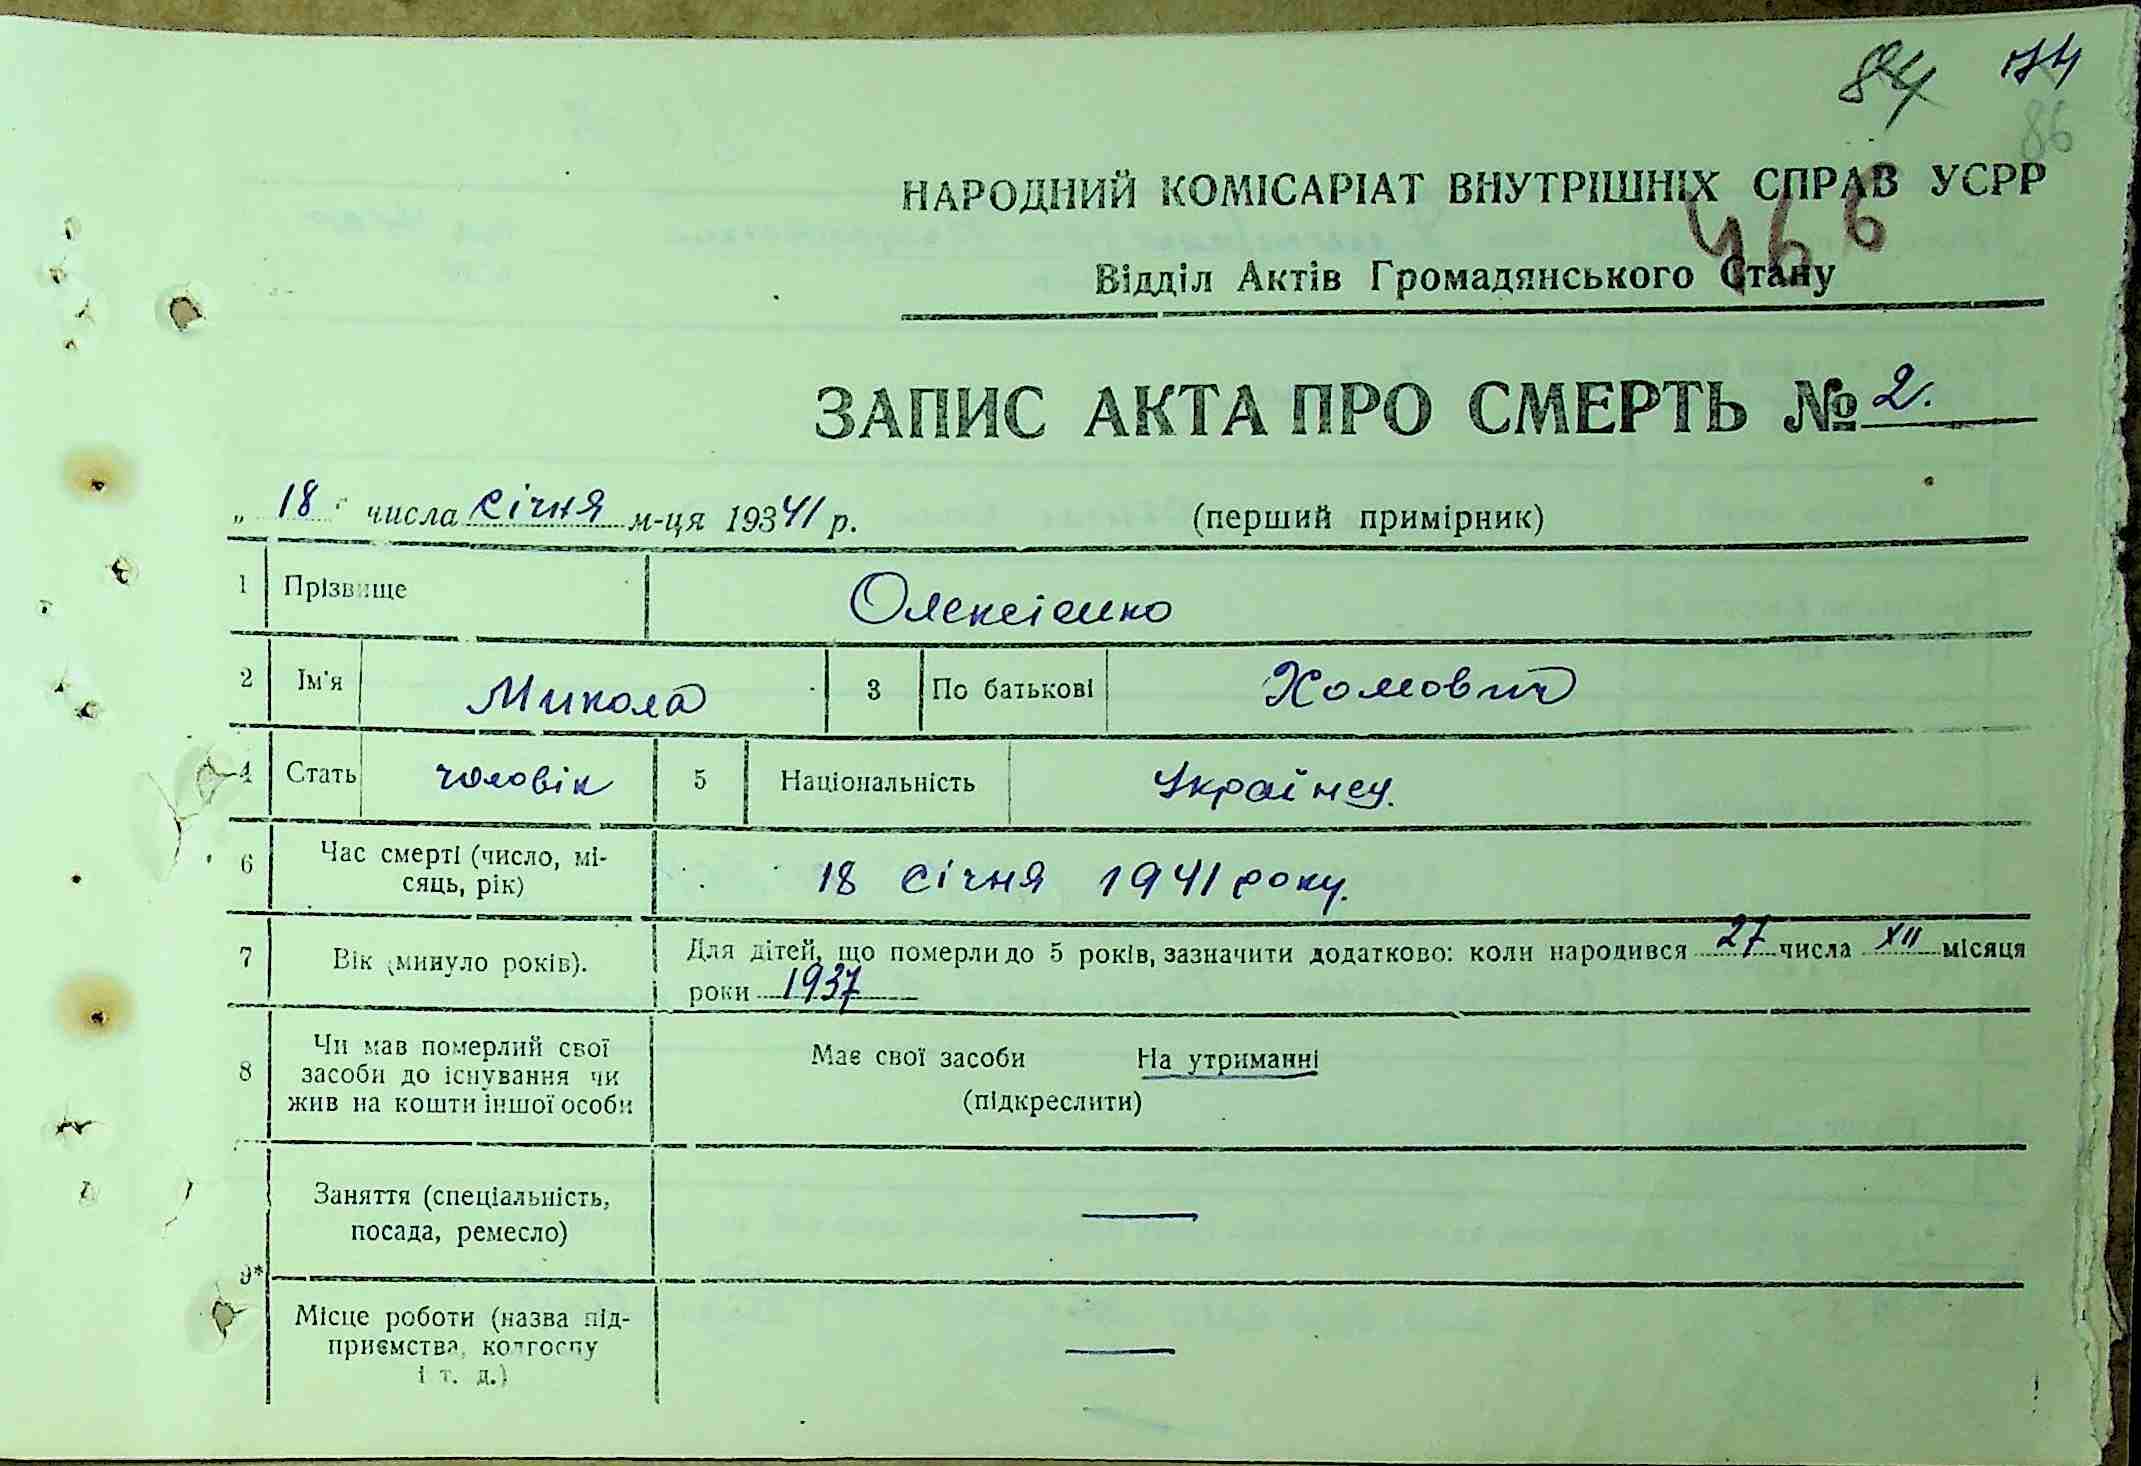 84 74
86
НАРОДНИЙ КОМІСАРІАТ ВНУТРІШНІХ СПРАВ УСРР
466
Відділ Актів Громадянського Стану
ЗАПИС АКТА ПРО СМЕРТЬ № 2.
„ 18 " числа січня м-ця 19341 р. (перший примірник)
1 Прізвище Олексієнко
2 Ім'я Микола 3 По батькові Хомович
4 Стать чоловік 5 Національність Українец.
6 Час смерті (число, мі-
сяць, рік) 18 січня 1941 року.
7 Вік (минуло років). Для дітей, що померли до 5 років, зазначити додатково: коли народився 27 числа XII місяця
роки 1937
8 Чи мав померлий свої
засоби до існування чи
жив на кошти іншої особи Має свої засоби На утриманні
(підкреслити)
9* Заняття (спеціальність,
посада, ремесло) —
Місце роботи (назва під-
приємства, колгоспу
і т. д.) —